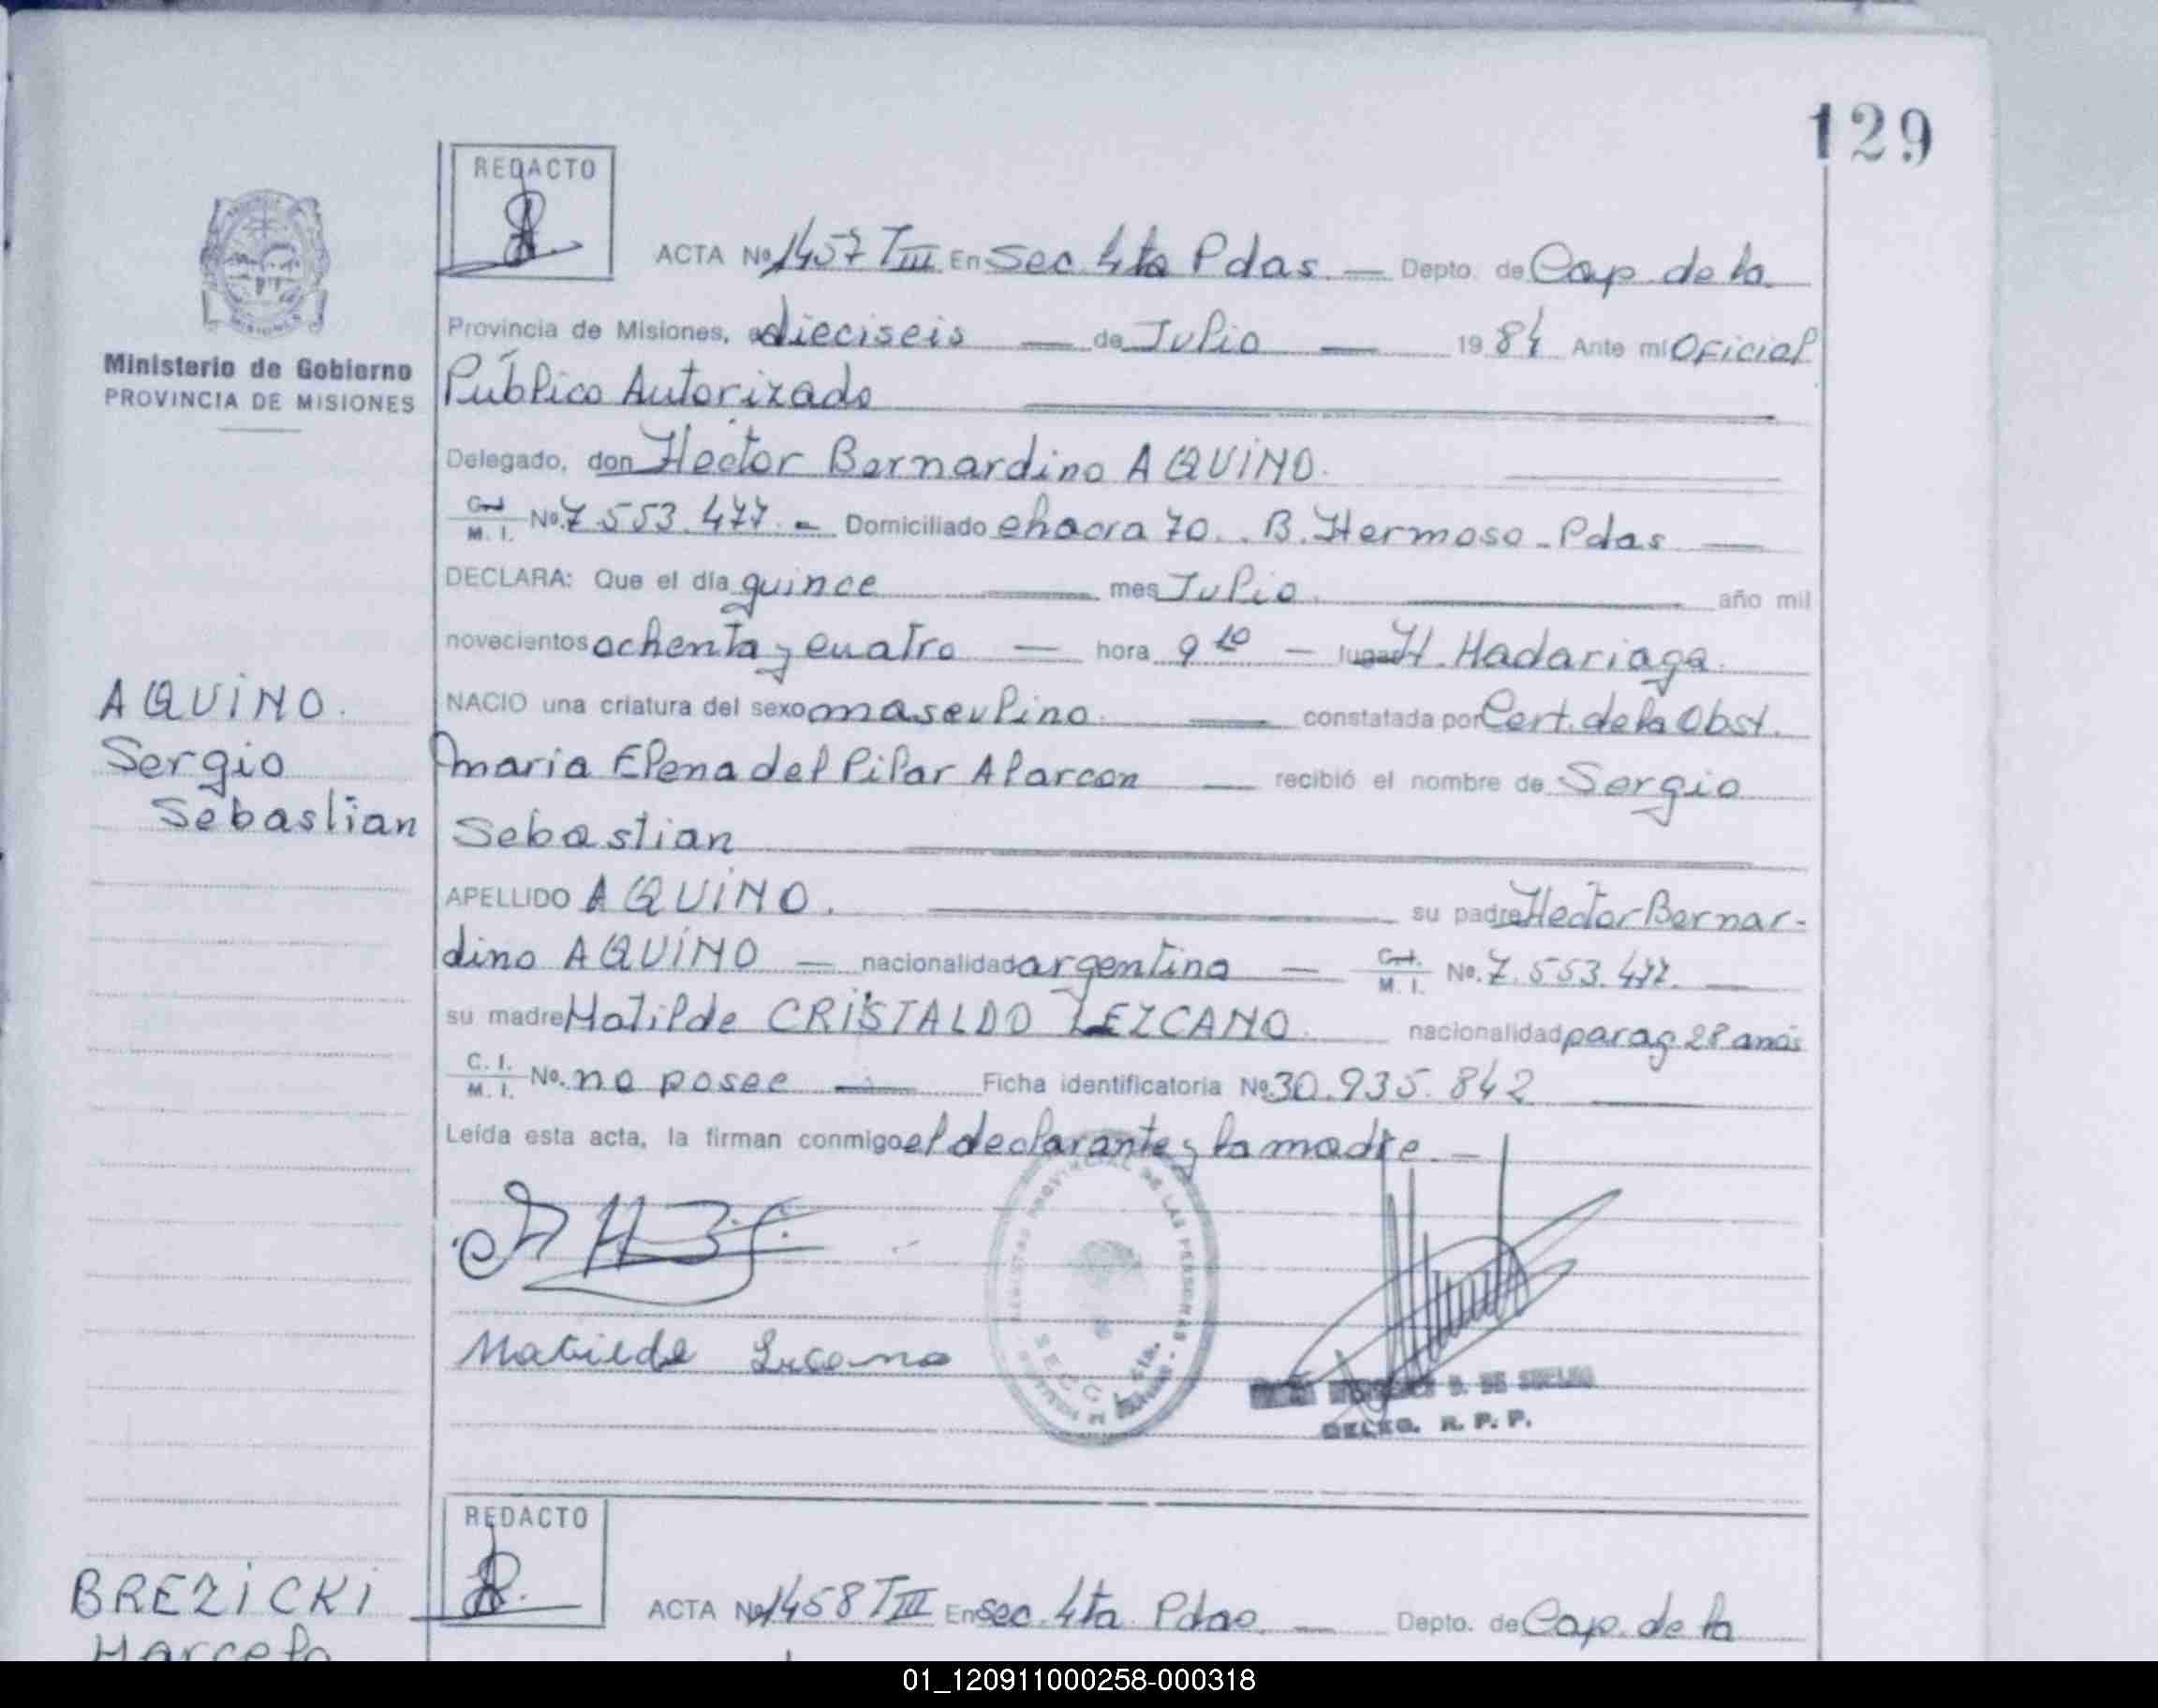 129
REDACTO
ACTA Nº 1457 T III En Sec. 4ta Pdas. — Depto. de Cap. de la
Provincia de Misiones, a dieciseis — de Julio — 1984 Ante mi Oficial
Ministerio de Gobierno
PROVINCIA DE MISIONES
Público Autorizado
Delegado, don Hector Bernardino AQUINO.
M. I. Nº 7.553.477. - Domiciliado chacra 70. B. Hermoso - Pdas —
DECLARA: Que el día quince — mes Julio. — año mil
novecientos ochenta y cuatro — hora 9 10 — lugar H. Madariaga.
AQUINO.
Sergio
Sebastian
NACIO una criatura del sexo masculino. — constatada por Cert. de la Obst.
Maria Elena del Pilar Alarcon — recibió el nombre de Sergio
Sebastian
APELLIDO AQUINO. — su padre Hector Bernar-
dino AQUINO — nacionalidad argentina — M. I. Nº. 7.553.477. —
su madre Matilde CRISTALDO LEZCANO. nacionalidad parag 28 anos
C. I. M. I. Nº. no posee — Ficha identificatoria Nº 30.935.842
Leída esta acta, la firman conmigo el declarante y la madre. —
PROVINCIAL DE LAS PERSONAS
SECC. 4ta.
Matilde
DELEG. R. P. P.
REDACTO
BREZICKI
Marcelo
ACTA Nº 1458 T III En sec. 4ta. Pdas. — Depto. de Cap. de la
01_120911000258-000318